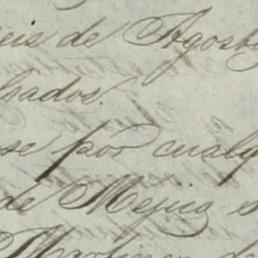 eis de Agosto
bados.
se por cualq
de Mejico e
Martinez de